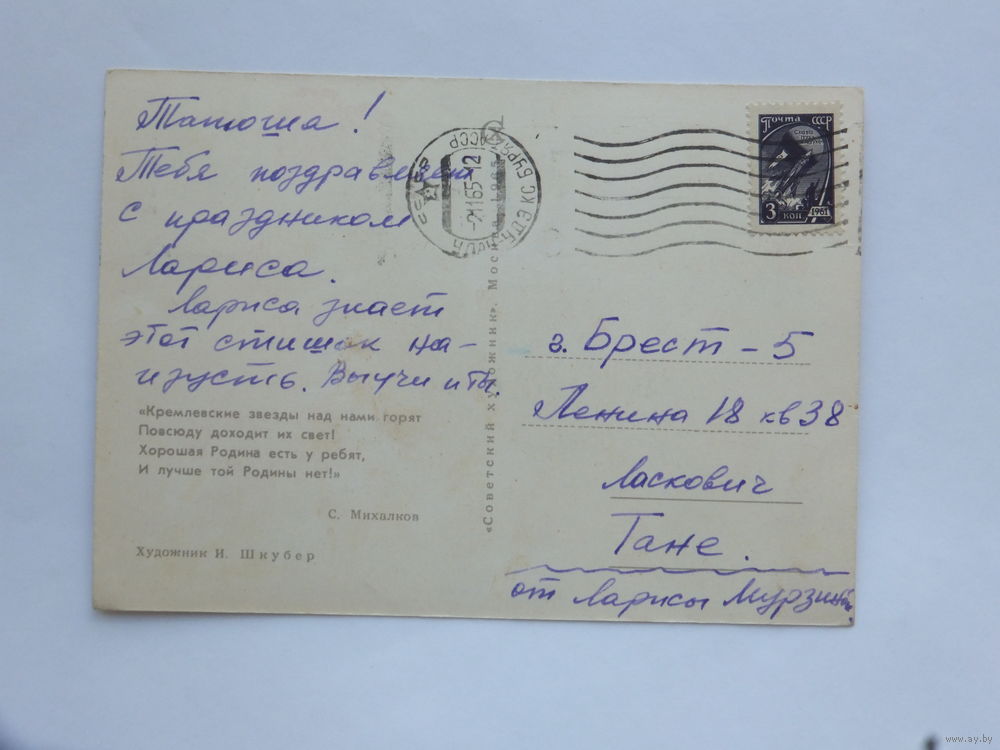 Танюша!
Тебя поздравляет
с праздником
Лариса.
Лариса знает
этот стишок на-
изусть. Выучи и ты.
«Кремлевские звезды над нами горят
Повсюду доходит их свет!
Хорошая Родина есть у ребят,
И лучше той Родины нет!»
С. Михалков
Художник И. Шкубер
«Советский художник». Москва 1965
АССР
-21165-12
УЛАН-УДЭ
Почта СССР
3 коп
1961
г. Брест - 5
Ленина 18 кв 38
Ласкович
Тане.
от Ларисы
www.ay.by